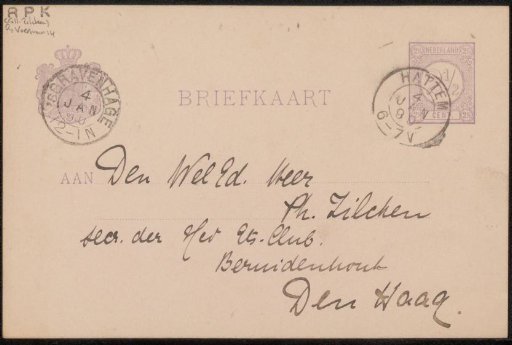 RPK
'SGRAVENHAGE
4
JAN
12-IN
BRIEFKAART
NEDERLAND
2½
CENT
HATTEM
4
6-7V
AAN Den WelEd. Heer
Ph. Zilcken
secr. der Ets-Club.
Bezuidenhout
Den Haag.